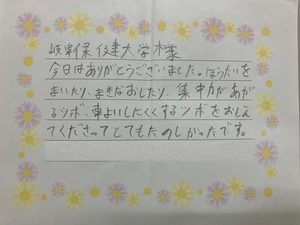 岐阜保健大学様
今日はありがとうございました。ほうたいを
まいたり、まきなおしたり、集中力があが
るツボ、車よいしにくくするツボをおしえ
てくださってとてもたのしかったです。